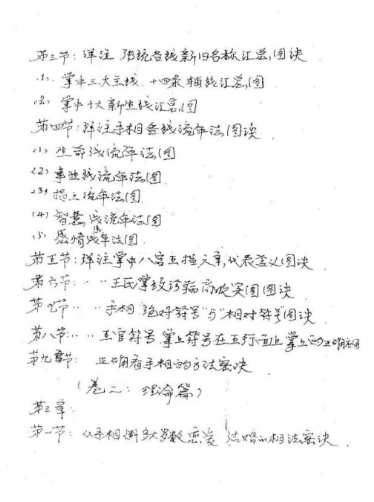 第三节：详注 传统各线新旧名称汇总,图诀
(1)、掌中三大主线、十四条辅线汇总,图
(2)、掌中十大新生线汇总图
第四节：详注手相各线流年法,图诀
(1) 生命线流年法,图
(2) 事业线流年法,图
(3) 指上流年法,图
(4) 智慧线流年法,图
(5) 感情线流年法图
第五节：详注掌中八宫五指六章,代表含义图诀
第六节：〃〃 王氏掌纹诊病高级实图图诀
第七节〃〃 手相"绝对符号"与"相对符号"图诀
第八节:〃〃 五官符号 掌上符号在五行 掌上的正确应用
第九章节: 正确看手相的方法密诀
(卷二：理命篇)
第三章:
第一节：从手相断多大岁数恋爱 结婚的相法密诀.